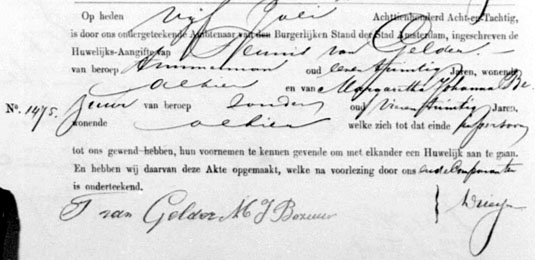 Op heden vijf Juli Achttienhonderd Acht-en-Tachtig,
is door ons ondergeteekende Ambtenaar van den Burgerlijken Stand der Stad Amsterdam, ingeschreven de
Huwelijks-Aangifte van Teunis van Gelder
van beroep Timmerman oud zeven twintig Jaren, wonende
alhier en van Margaretha Johanna Be
No. 1475. van beroep zonder oud Vier en twintig Jaren,
wonende alhier welke zich tot dat einde in persoon
tot ons gewend hebben, hun voornemen te kennen gevende om met elkander een Huwelijk aan te gaan.
En hebben wij daarvan deze Akte opgemaakt, welke na voorlezing door ons en de Comparanten
is onderteekend.
T van Gelder M J Bezuur